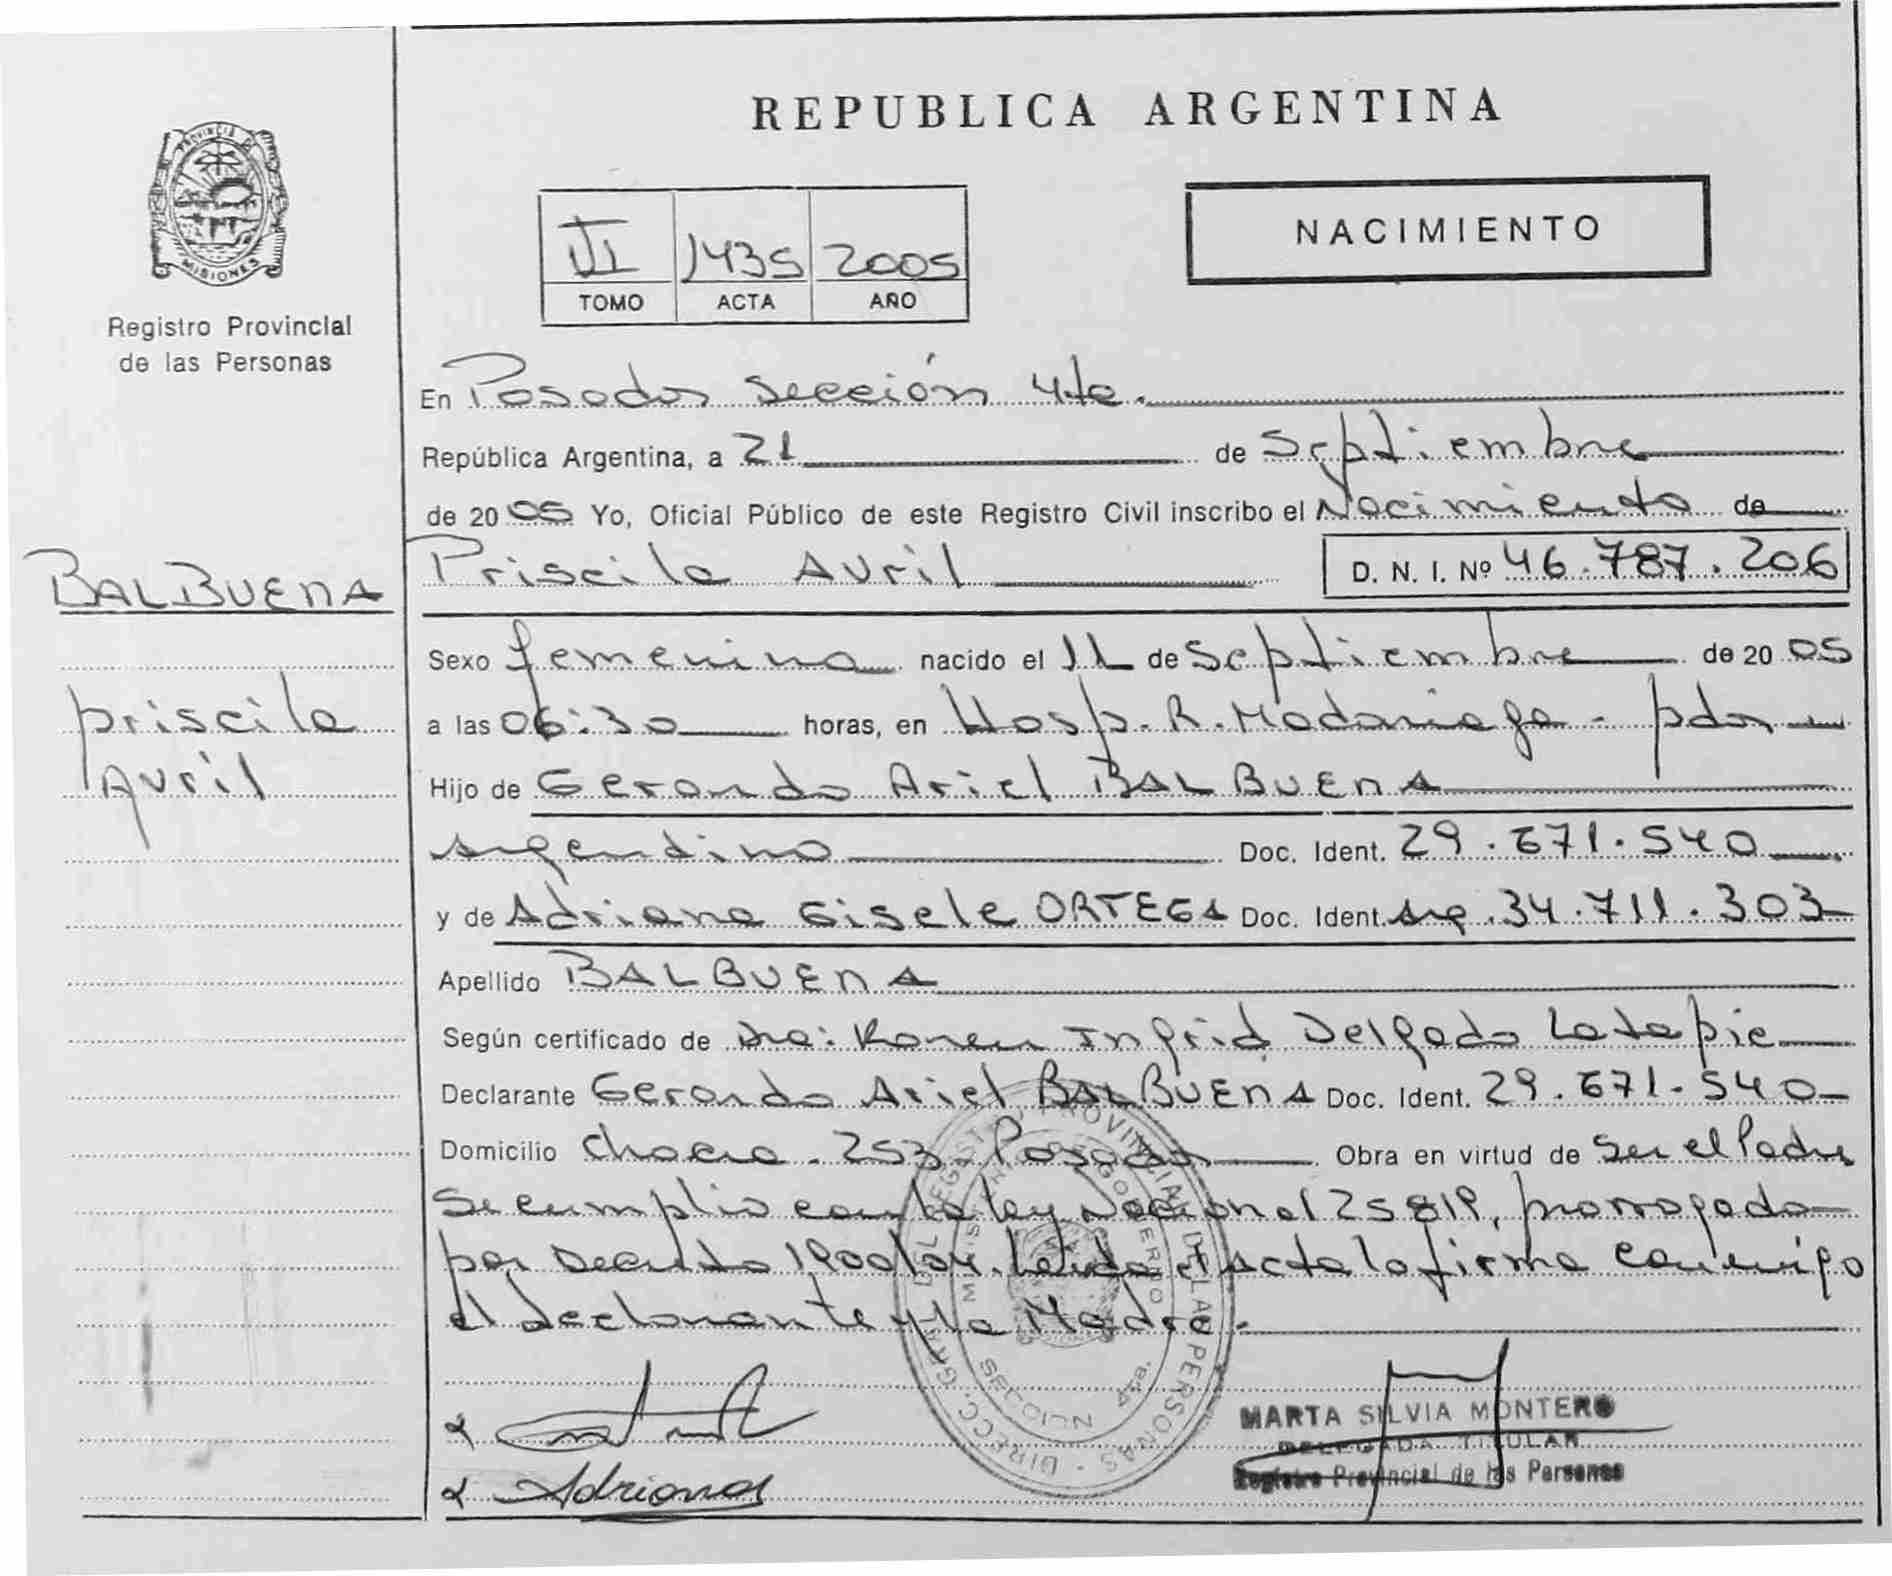 REPUBLICA ARGENTINA
NACIMIENTO
PROVINCIA DE
MISIONES
Registro Provincial
de las Personas
1435 2005
TOMO ACTA AÑO
En Posadas Sección 4ta.
República Argentina, a 21 de Septiembre
de 2005 Yo, Oficial Público de este Registro Civil inscribo el Nacimiento de
Priscila Avril D. N. I. Nº 46.787.206
BALBUENA
Priscila
Avril
Sexo femenino nacido el 11 de Septiembre de 2005
a las 06:30 horas, en Hosp. R. Madariaga - pdas
Hijo de Gerardo Ariel BALBUENA
argentino Doc. Ident. 29.671.540
y de Adriana Gisele ORTEGA Doc. Ident. arg. 34.711.303
Apellido BALBUENA
Según certificado de Dra: Karen Ingrid Delgado Latapie
Declarante Gerardo Ariel BALBUENA Doc. Ident. 29.671.540
Domicilio Chacra. 253 Posadas Obra en virtud de Ser el Padre
Se cumplio con la ley Nacional 25819, prorrogada
por Decreto 1900/04. Leida el Acta la firma conmigo
el declarante y la Madre.
DIRECC. GRAL. DEL REGISTRO PROVINCIAL DE LAS PERSONAS
MINISTERIO GOBIERNO
SECCION 4ta.
Adriana
MARTA SILVIA MONTERO
DELEGADA TITULAR
Registro Provincial de las Personas